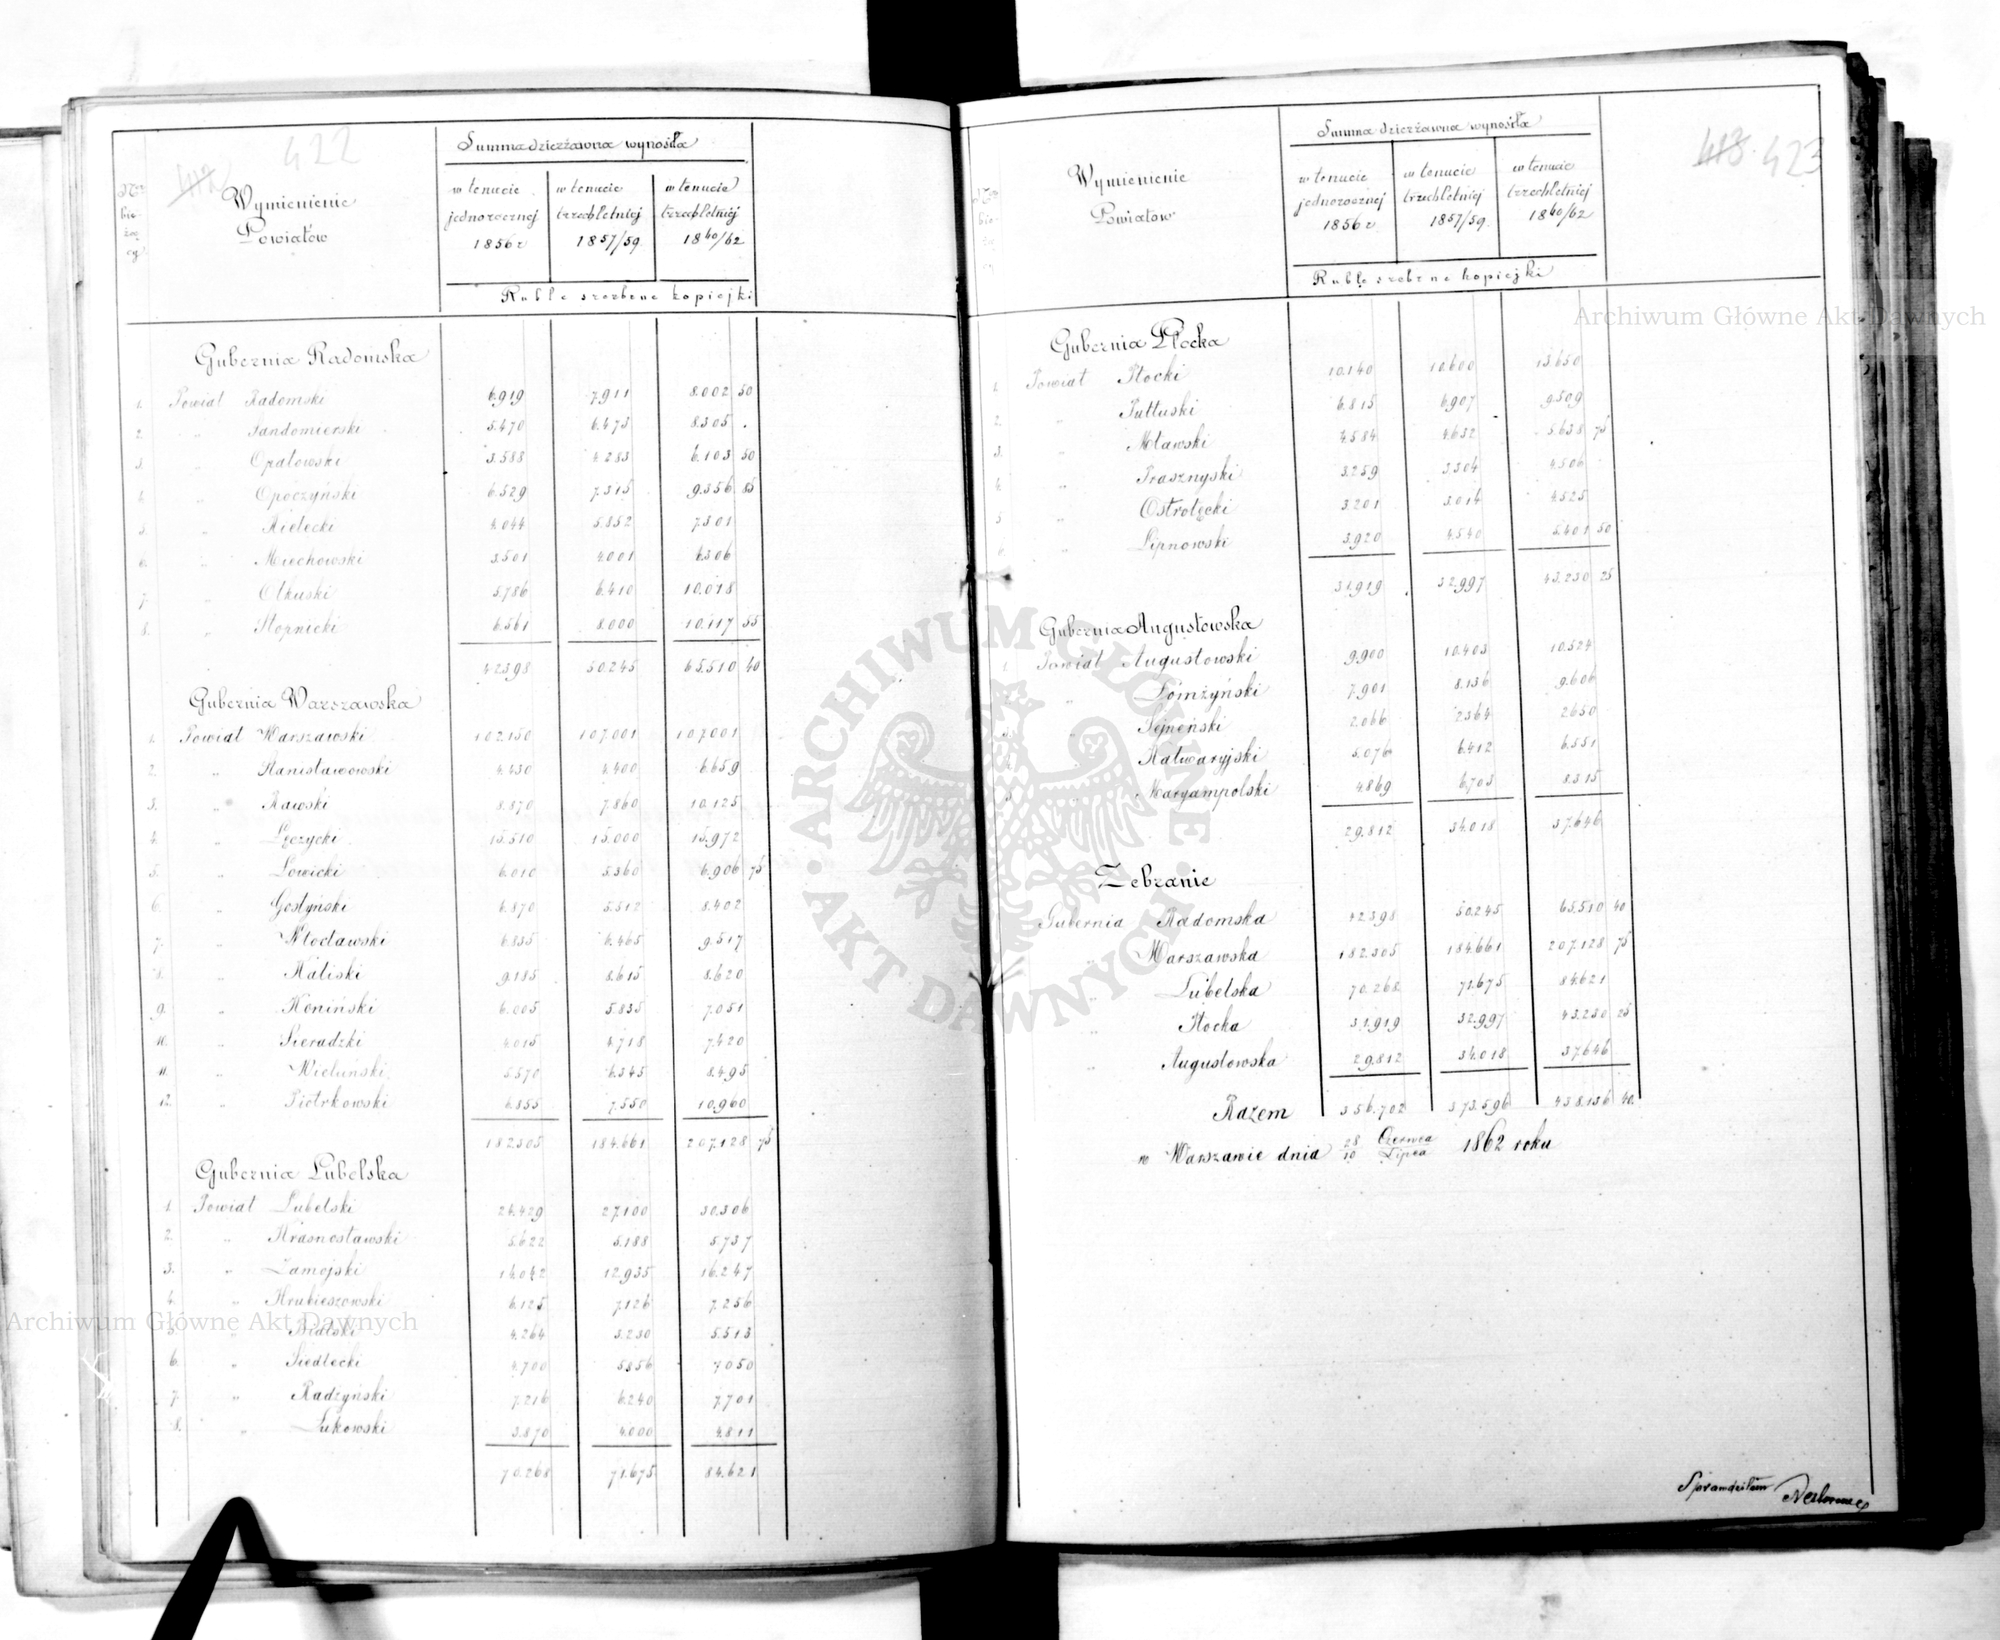 422
Nr bieżący
Wymienienie Powiatów
Summa dzierżawna wynosiła
w tenucie jednorocznej 1856 r
w tenucie trzechletniej 1857/59
w tenucie trzechletniej 1860/62
Ruble srebrne kopiejki
Gubernia Radomska
1. Powiat Radomski 6.919 7.911 8.002 50
2. „ Sandomierski 5.470 6.473 8.305
3. „ Opatowski 3.588 4.283 6.103 50
4. „ Opoczyński 6.529 7.315 9.356 85
5. „ Kielecki 4.044 5.852 7.301
6. „ Miechowski 3.501 4.001 6.306
7. „ Olkuski 5.786 6.410 10.018
8. „ Stopnicki 6.561 8.000 10.117 55
42398 50.245 65.510 40
Gubernia Warszawska
1. Powiat Warszawski 102.150 107.001 107.001
2. „ Stanisławowski 4.430 4.400 6.659
3. „ Rawski 8.870 7.860 10.125
4. „ Łęczycki 15.510 15.000 15.972
5. „ Łowicki 6.010 5.360 6.906 75
6. „ Gostyński 6.870 5.512 8.402
7. „ Włocławski 6.835 6.465 9.517
8. „ Kaliski 9.185 8.615 8.620
9. „ Koniński 6.005 5.835 7.051
10. „ Sieradzki 4.015 4.718 7.420
11. „ Wieluński 5.570 6.345 8.495
12. „ Piotrkowski 6.855 7.550 10.960
182.305 184.661 207.128 75
Gubernia Lubelska
1. Powiat Lubelski 24.429 27.100 30.306
2. „ Krasnostawski 5.622 5.188 5.737
3. „ Zamojski 14.042 12.935 16.247
4. „ Hrubieszowski 6.125 7.126 7.256
5. „ Bialski 4.264 3.230 5.513
6. „ Siedlecki 4.700 5.856 7.050
7. „ Radzyński 7.216 6.240 7.701
8. „ Łukowski 3.870 4.000 4.811
70.268 71.675 84.621
423
Wymienienie Powiatów
Summa dzierżawna wynosiła
w tenucie jednorocznej 1856 r
w tenucie trzechletniej 1857/59
w tenucie trzechletniej 1860/62
Ruble srebrne kopiejki
Gubernia Płocka
1. Powiat Płocki 10.140 10.600 13.650
2. „ Pułtuski 6.815 6.907 9.509
3. „ Mławski 4.584 4.632 5.638 75
4. „ Prasznyski 3.259 3.304 4.506
5 „ Ostrołęcki 3.201 3.014 4.525
6. „ Lipnowski 3.920 4.540 5.401 50
31.919 32.997 43.230 25
Gubernia Augustowska
1. Powiat Augustowski 9.900 10.403 10.524
„ Łomżyński 7.901 8.136 9.606
3. „ Sejneński 2.066 2364 2650
4. „ Kalwaryjski 5.076 6.412 6.551
5 „ Maryampolski 4.869 6.703 8.315
29.812 34.018 37.646
Zebranie
Gubernia Radomska 42398 50.245 65.510 40
„ Warszawska 182.305 184.661 207.128 75
„ Lubelska 70.268 71.675 84.621
„ Płocka 31.919 32.997 43.230 25
„ Augustowska 29.812 34.018 37.646
Razem 356.702 373.596 438.136 40.
w Warszawie dnia 28 Czerwca / 10 Lipca 1862 roku
Sprawdziłem
Archiwum Główne Akt Dawnych
Archiwum Główne Akt Dawnych
· ARCHIWUM GŁÓWNE · AKT DAWNYCH